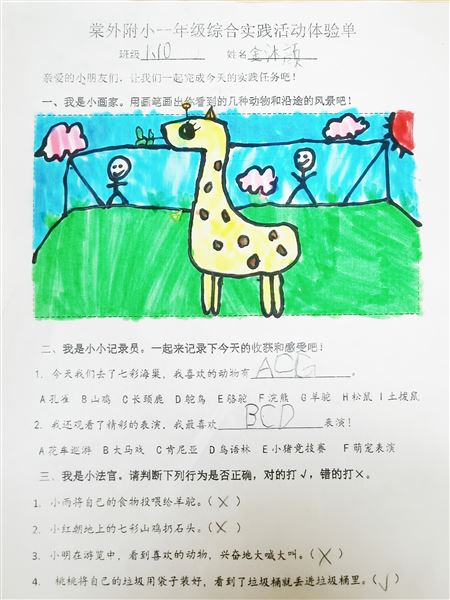 棠外附小一年级综合实践活动体验单
班级 1、10 姓名 金沐颜
亲爱的小朋友们，让我们一起完成今天的实践任务吧！
一、我是小画家。用画笔画出你看到的几种动物和沿途的风景吧！
二、我是小小记录员。一起来记录下今天的收获和感受吧！
1. 今天我们去了七彩海巢，我喜欢的动物有 ACG 。
A孔雀 B山鸡 C长颈鹿 D鸵鸟 E骆驼 F浣熊 G羊驼 H松鼠 I土拨鼠
2. 我还观看了精彩的表演，我最喜欢 BCD 表演！
A花车巡游 B大马戏 C肯尼亚 D鸟语林 E小猪竞技赛 F萌宠表演
三、我是小法官。请判断下列行为是否正确，对的打√，错的打×。
1. 小雨将自己的食物投喂给羊驼。（×）
2. 小红朝地上的七彩山鸡扔石头。（×）
3. 小明在游览中，看到喜欢的动物，兴奋地大喊大叫。（×）
4. 桃桃将自己的垃圾用袋子装好，看到了垃圾桶就丢进垃圾桶里。（√）